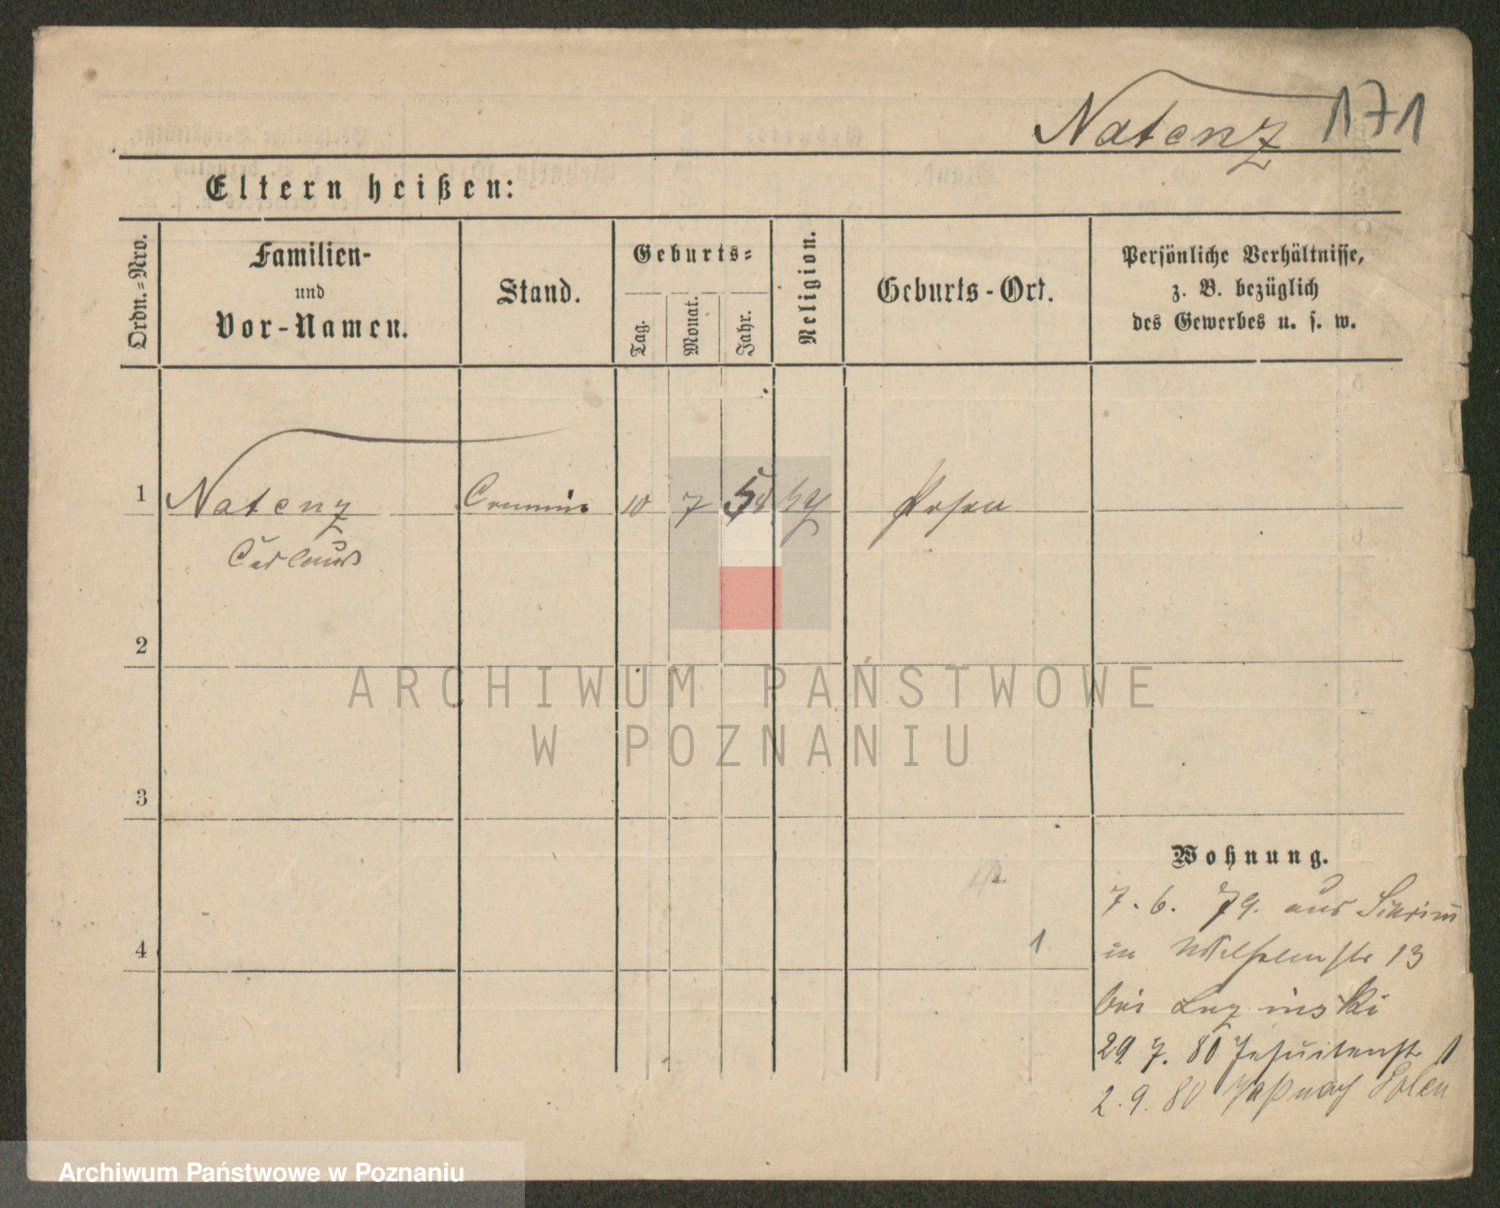 Natenz 171
Eltern heißen:
Ordn.=Nro.
Familien-
und
Vor-Namen.
Stand.
Geburts=
Tag.
Monat.
Jahr.
Religion.
Geburts-Ort.
Persönliche Verhältnisse,
z. B. bezüglich
des Gewerbes u. s. w.
1 Natenz Commis 10 7 Posen
2
3
4
1
Wohnung.
7. 6. 79. aus
in Wilhelmstr 13
bei
29. 7. 80 Jesuitenstr 11
2. 9. 80 nach
ARCHIWUM PAŃSTWOWE
W POZNANIU
Archiwum Państwowe w Poznaniu